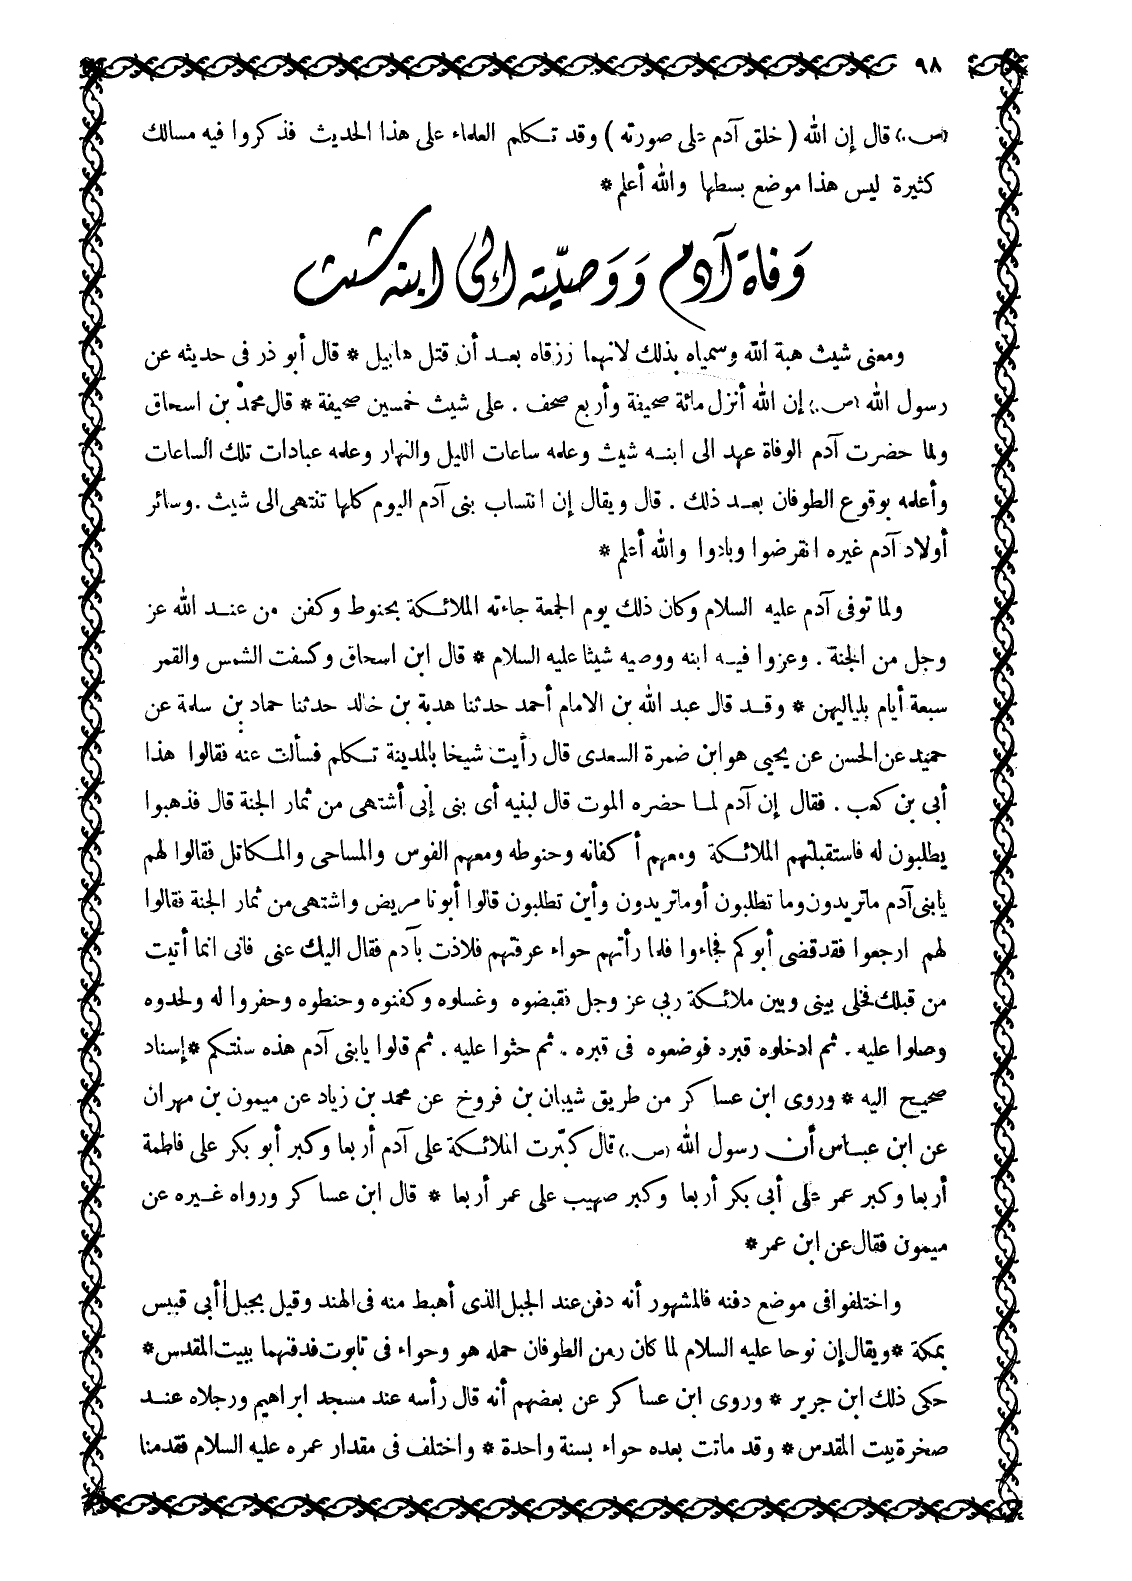 ٩٨
(ص.) قال إن الله ( خلق آدم على صورته ) وقد تكلم العلماء على هذا الحديث فذكروا فيه مسالك
كثيرة ليس هذا موضع بسطها والله أعلم *
وَفاة آدم وَوَصيّته إلى ابنه شيث
ومعنى شيث هبة الله وسمياه بذلك لانهما رزقاه بعد أن قتل هابيل * قال أبو ذر فى حديثه عن
رسول الله (ص.) إن الله أنزل مائة صحيفة وأربع صحف . على شيث خمسين صحيفة * قال محمد بن اسحاق
ولما حضرت آدم الوفاة عهد الى ابنه شيث وعلمه ساعات الليل والنهار وعلمه عبادات تلك الساعات
وأعلمه بوقوع الطوفان بعد ذلك . قال ويقال إن انتساب بنى آدم اليوم كلها تنتهى الى شيث . وسائر
أولاد آدم غيره انقرضوا وبادوا والله أعلم *
ولما توفى آدم عليه السلام وكان ذلك يوم الجمعة جاءته الملائكة بحنوط وكفن من عند الله عز
وجل من الجنة . وعزوا فيه ابنه ووصيه شيثا عليه السلام * قال ابن اسحاق وكسفت الشمس والقمر
سبعة أيام بلياليهن * وقد قال عبد الله بن الامام أحمد حدثنا هدبة بن خالد حدثنا حماد بن سلمة عن
حميد عن الحسن عن يحيى هو ابن ضمرة السعدى قال رأيت شيخا بالمدينة تكلم فسألت عنه فقالوا هذا
أبى بن كعب . فقال إن آدم لما حضره الموت قال لبنيه أى بنى إنى أشتهى من ثمار الجنة قال فذهبوا
يطلبون له فاستقبلتهم الملائكة ومعهم أكفانه وحنوطه ومعهم الفوس والمساحى والمكاتل فقالوا لهم
يابنى آدم ماتريدون وما تطلبون أوماتريدون وأين تطلبون قالوا أبونا مريض واشتهى من ثمار الجنة فقالوا
لهم ارجعوا فقد قضى أبوكم فجاءوا فلما رأتهم حواء عرفتهم فلاذت بآدم فقال اليك عنى فانى انما أتيت
من قبلك فخلى بينى وبين ملائكة ربى عز وجل فقبضوه وغسلوه وكفنوه وحنطوه وحفروا له ولحدوه
وصلوا عليه . ثم ادخلوه قبره فوضعوه فى قبره . ثم حثوا عليه . ثم قالوا يابنى آدم هذه سنتكم * إسناد
صحيح اليه * وروى ابن عساكر من طريق شيبان بن فروخ عن محمد بن زياد عن ميمون بن مهران
عن ابن عباس أن رسول الله (ص.) قال كبّرت الملائكة على آدم أربعا وكبر أبو بكر على فاطمة
أربعا وكبر عمر على أبى بكر أربعا وكبر صهيب على عمر أربعا * قال ابن عساكر ورواه غيره عن
ميمون فقال عن ابن عمر *
واختلفوا فى موضع دفنه فالمشهور أنه دفن عند الجبل الذى أهبط منه فى الهند وقيل بجبل أبى قبيس
بمكة * ويقال إن نوحا عليه السلام لما كان زمن الطوفان حمله هو وحواء فى تابوت فدفنهما ببيت المقدس *
حكى ذلك ابن جرير * وروى ابن عساكر عن بعضهم أنه قال رأسه عند مسجد ابراهيم ورجلاه عند
صخرة بيت المقدس * وقد ماتت بعده حواء بسنة واحدة * واختلف فى مقدار عمره عليه السلام فقدمنا